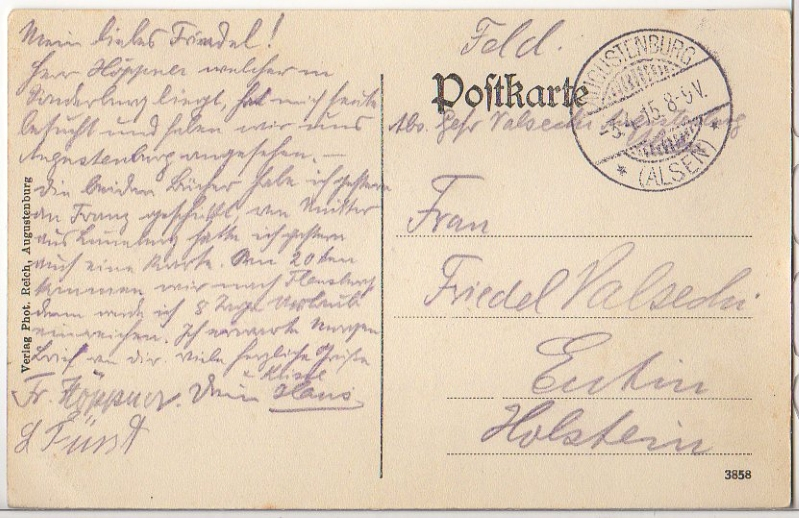 Mein liebes Friedel!
Herr Höppner welcher in
Sonderburg liegt, hat mich heute
besucht und haben wir uns
Augustenburg angesehen. –
Die beiden Bücher habe ich gestern
an Franz geschickt, von Mutter
aus Lüneburg hatte ich gestern
auch eine Karte. Am 20ten
kommen wir nach Flensburg
dann werde ich 8 Tage Urlaub
einreichen. Ich erwarte Morgen
Brief von dir. viele herzliche Grüße
u Küsse
Fr. Höppner. Dein Hans
Fürst
Verlag Phot. Reich, Augustenburg
Feld.
Postkarte
Abs. Gefr Valsechi Augustenburg
AUGUSTENBURG
15.8-9V.
* (ALSEN) *
Frau
Friedel Valsechi
Eutin
Holstein
3858